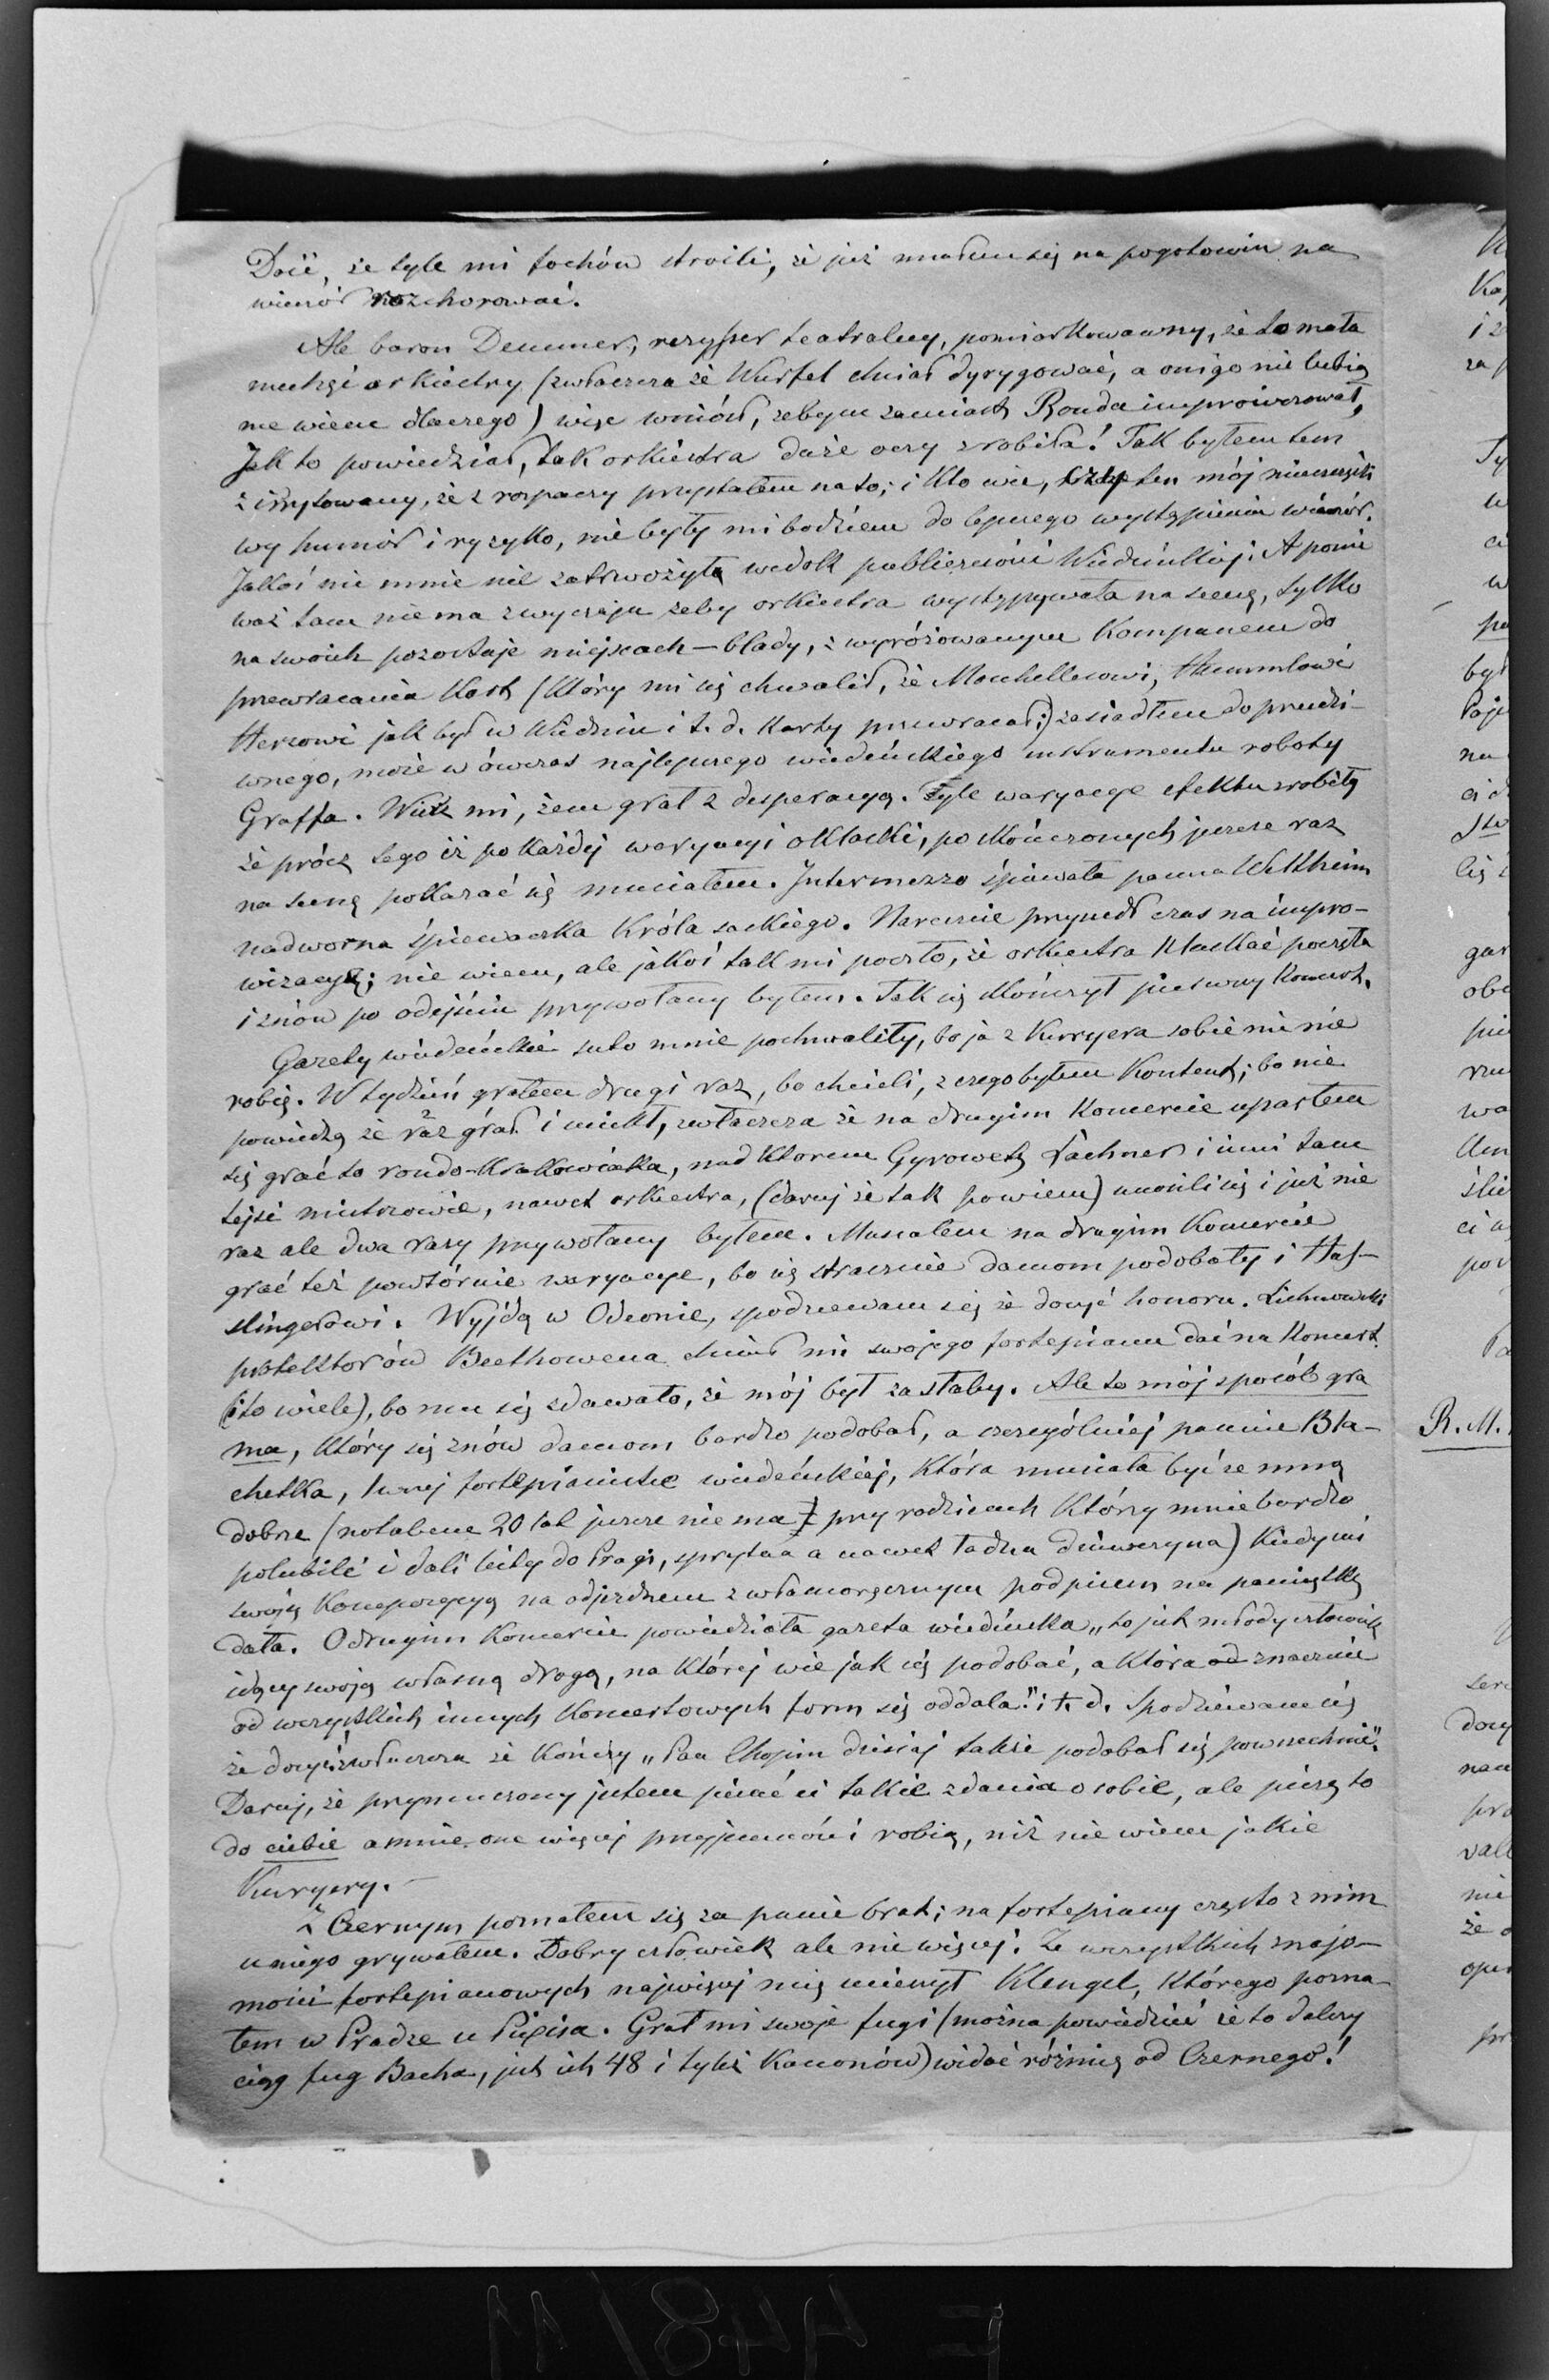 Dość, że tyle mi fochów stroili, że już miałem się na pogotowiu na
wieczór rozchorować.
Ale baron Demmer, reżysser teatralny, pomiarkowawszy, że to mała
niechęć orkiestry (zwłaszcza że Würfel chciał dyrygować, a oni go nie lubią
nie wiem dlaczego) więc wniósł, żebym zamiast Ronda improwizował,
Jak to powiedział, tak orkiestra duże oczy zrobiła! Tak byłem tem
zirrytowany, że z rozpaczy przystałem na to; i kto wie, czy ten mój nieszczęśli
wy humor i ryzyko, nie były mi bodźcem do lepszego wystąpienia wieczór.
Jakoś nie mnie nie zatrwożyła widok publiczności Wiedeńskiéj. A ponie
waż tam nie ma zwyczaju żeby orkiestra występywała na scenę, tylko
na swoich pozostaje miejscach — blady, z wyróżowanym kompanem do
przewracania kart (który mi się chwalił, że Moschellesowi, Hummlowi
Herzowi jak był w Wiedniu i t. d. karty przewracał;) zasiadłem do prześli-
cznego, może w ówczas najlepszego wiedeńskiego instrumentu roboty
Graffa. Wierz mi, żem grał z desperacyą. Tyle waryacye efektu zrobiły
że prócz tego iż po każdéj waryacyi oklaski, po skończonych jeszcze raz
na scenę pokazać się musiałem. Intermezzo śpiewała panna Weltheim
nadworna śpiewaczka Króla saskiego. Nareszcie przyszedł czas na impro-
wizacyę; nie wiem, ale jakoś tak mi poszło, że orkiestra klaskać poczęła
i znów po odejściu przywołany byłem. Tak się skończył pierwszy koncert.
Gazety wiedeńskie suto mnie pochwaliły, bo ja z Kurryera sobie nic nie
robię. W tydzień grałem drugi raz, bo chcieli, z czego byłem kontent; bo nie
powiedzą że raz grał i uciekł, zwłaszcza że na drugim koncercie uparłem
się grać to rondo-krakowiaka, nad którem Gyrowetz Lachner i inni tam
tejsi mistrzowie, nawet orkiestra, (daruj że tak powiem) unosili się i już nie
raz ale dwa razy przywołany byłem. Musiałem na drugim koncercie
grać też powtórnie waryacye, bo się strasznie damom podobały i Has-
slingerowi. Wyjdą w Odeonie, spodziewam się że dosyć honoru. Lichnowski
protektorów Beethowena chciał mi swojego fortepianu dać na koncert
(to wiele), bo mu się zdawało, że mój był za słaby. Ale to mój sposób gra
nia, który się znów damom bardzo podobał, a szczególniéj pannie Bla-
hetka, 1wszéj fortepianistce wiedeńskiéj, która musiała być ze mną
dobrze (notabene 20 lat jeszcze nie ma przy rodzicach którzy mnie bardzo
polubili i dali listy do Pragi, sprytna a nawet ładna dziewczyna) kiedy mi
swoją kompozycyą na odjezdnem z własnoręcznym podpisem na pamiątkę
dała. O drugim koncercie powiedziała gazeta wiedeńska „to jest młody człowiek
idący swoją własną drogą, na któréj wie jak się podobać, a która od znacznie
od wszystkich innych koncertowych form się oddala." i t. d. Spodziewam się
że dosyć; zwłaszcza że kończy „Pan Chopin dzisiaj także podobał się powszechnie".
Daruj, że przymuszony jestem pisać ci takie zdania o sobie, ale piszę to
do ciebie a mnie one więcéj przyjemności robią, niż nie wiem jakie
Kuryery.—
Z Czernym poznałem się za panie brat; na fortepiany często z nim
u niego grywałem. Dobry człowiek ale nie więcéj. Ze wszystkich znajo-
mości fortepianowych najwięcéj mię ucieszył Klengel, którego pozna-
łem w Pradze u Pixisa. Grał mi swoje fugi (można powiedzieć że to dalszy
ciąg fug Bacha, jest ich 48 i tyleż Kanonów) widać różnicę od Czernego!
R. M.